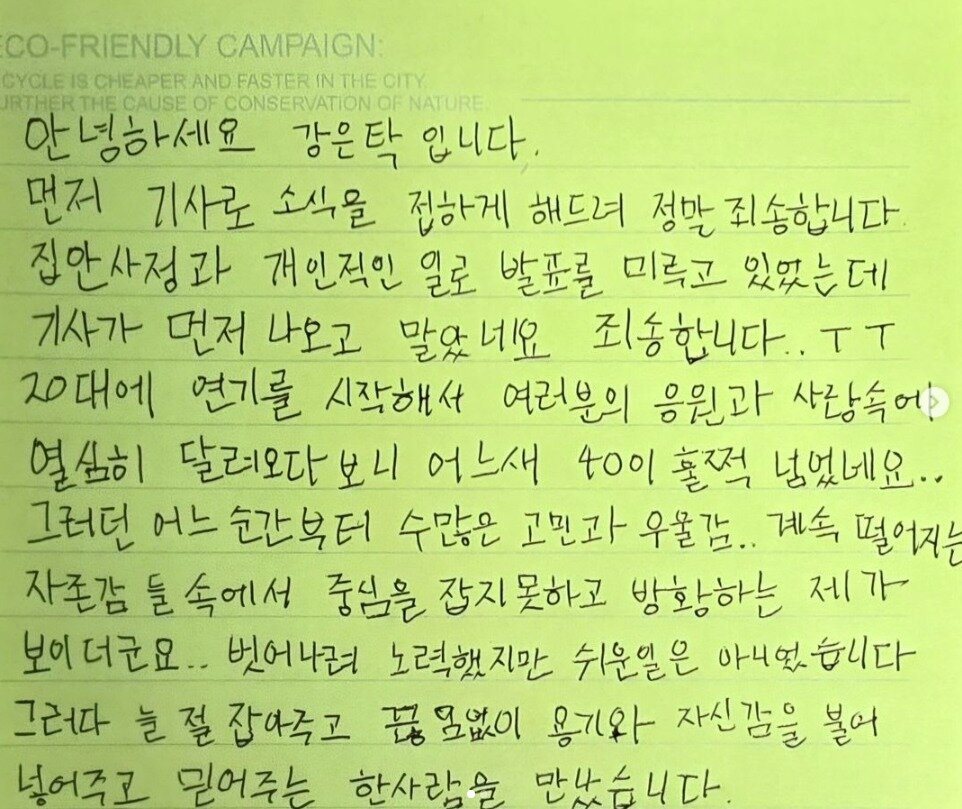 ECO-FRIENDLY CAMPAIGN:
CYCLE IS CHEAPER AND FASTER IN THE CITY.
URTHER THE CAUSE OF CONSERVATION OF NATURE.
안녕하세요 강은탁 입니다.
먼저 기사로 소식을 접하게 해드려 정말 죄송합니다.
집안사정과 개인적인 일로 발표를 미루고 있었는데
기사가 먼저 나오고 말았네요 죄송합니다.. ㅜㅜ
20대에 연기를 시작해서 여러분의 응원과 사랑속에
열심히 달려오다보니 어느새 40이 훌쩍 넘었네요..
그러던 어느 순간부터 수많은 고민과 우울감.. 계속 떨어지는
자존감 들 속에서 중심을 잡지못하고 방황하는 제가
보이더군요.. 벗어나려 노력했지만 쉬운일은 아니었습니다
그러다 늘 절 잡아주고 끊임없이 용기와 자신감을 불어
넣어주고 믿어주는 한사람을 만났습니다.